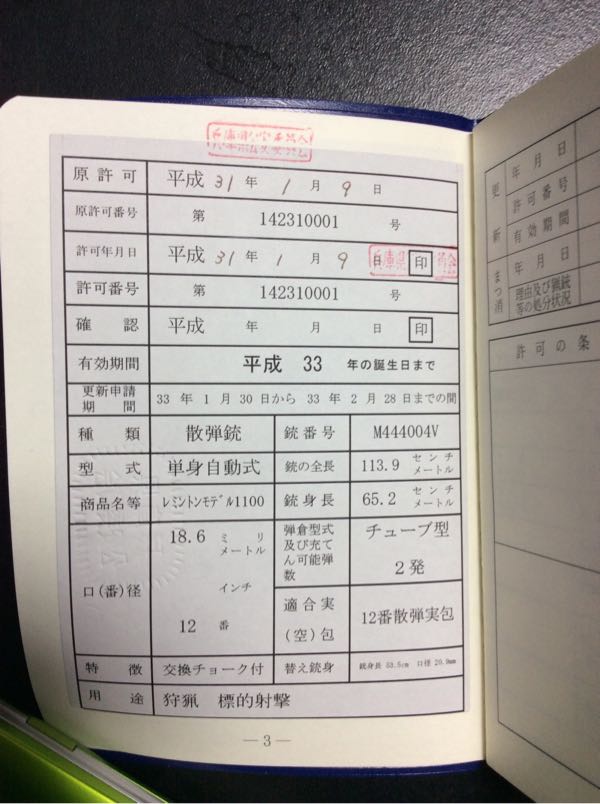 原許可 平成 31 年 1 月 9 日
原許可番号 第 142310001 号
許可年月日 平成 31 年 1 月 9 日 印
許可番号 第 142310001 号
確認 平成 年 月 日 印
有効期間 平成 33 年の誕生日まで
更新申請期間 33 年 1 月 30 日から 33 年 2 月 28 日までの間
種類 散弾銃 銃番号 M444004V
型式 単身自動式 銃の全長 113.9 センチメートル
商品名等 レミントンモデル1100 銃身長 65.2 センチメートル
口(番)径 18.6 ミリメートル インチ 12 番
弾倉型式及び充てん可能弾数 チューブ型 2発
適合実(空)包 12番散弾実包
特徴 交換チョーク付 替え銃身
用途 狩猟 標的射撃
—3—
更新
年月日
許可番号
有効期間
まつ消
年月日
理由及び猟銃等の処分状況
許可の条